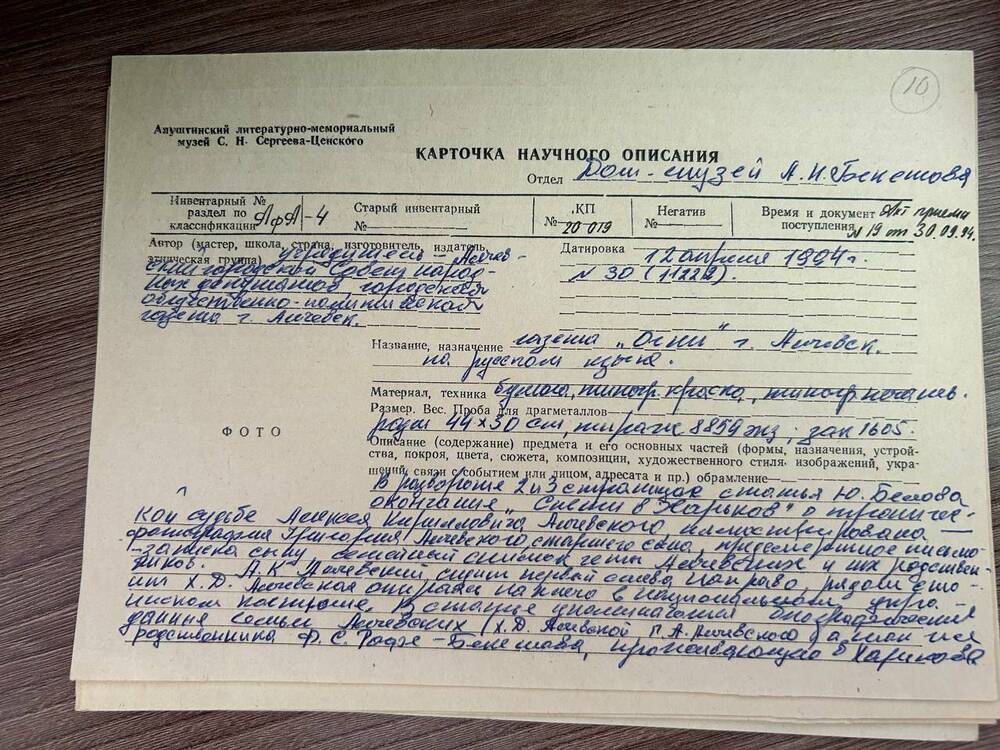 10
Алуштинский литературно-мемориальный
музей С. Н. Сергеева-Ценского
КАРТОЧКА НАУЧНОГО ОПИСАНИЯ
Отдел Дом-музей А. Н. Бекетова
Инвентарный №
раздел по
классификации АфА-4
Старый инвентарный
№
КП
№ 20 019
Негатив
№
Время и документ Акт приема
поступления № 19 от 30.09.94.
Автор (мастер, школа, страна, изготовитель, издатель,
этническая группа) учредитель – Алчев-
ский городской Совет народ-
ных депутатов, городская
общественно-политическая
газета г. Алчевск.
Датировка 12 апреля 1994 г.
№ 30 (11229)
Название, назначение газета „Огни" г. Алчевск.
на русском языке.
Материал, техника бумага, типогр. краска, типогр. печать.
Размер. Вес. Проба для драгметаллов
44х30 см, тираж 8859 экз; зак 1605.
ФОТО
Описание (содержание) предмета и его основных частей (формы, назначения, устрой-
ства, покроя, цвета, сюжета, композиции, художественного стиля изображений, укра-
шений, связи с событием или лицом, адресата и пр.) обрамление
В развороте 2 и 3 страницах статья Ю. Белова
окончание „Спети в Харьков" о трагичес-
кой судьбе Алексея Кирилловича Алчевского иллюстрирована
фотография Григория Алчевского старшего сына, предсмертное письмо
-записка сыну семейный снимок четы Алчевских и их родствен-
ников. А. К. Алчевский сидит первый слева направо рядом стоит
Х. Д. Алчевская опираясь на плечо в национальном укра-
инском костюме. В статье упоминаются биографические
данные семьи Алчевских (Х. Д. Алчевской Г. А. Алчевского а также
родственника Ф. С. Рофе-Бекетова, проживающего в Харькове